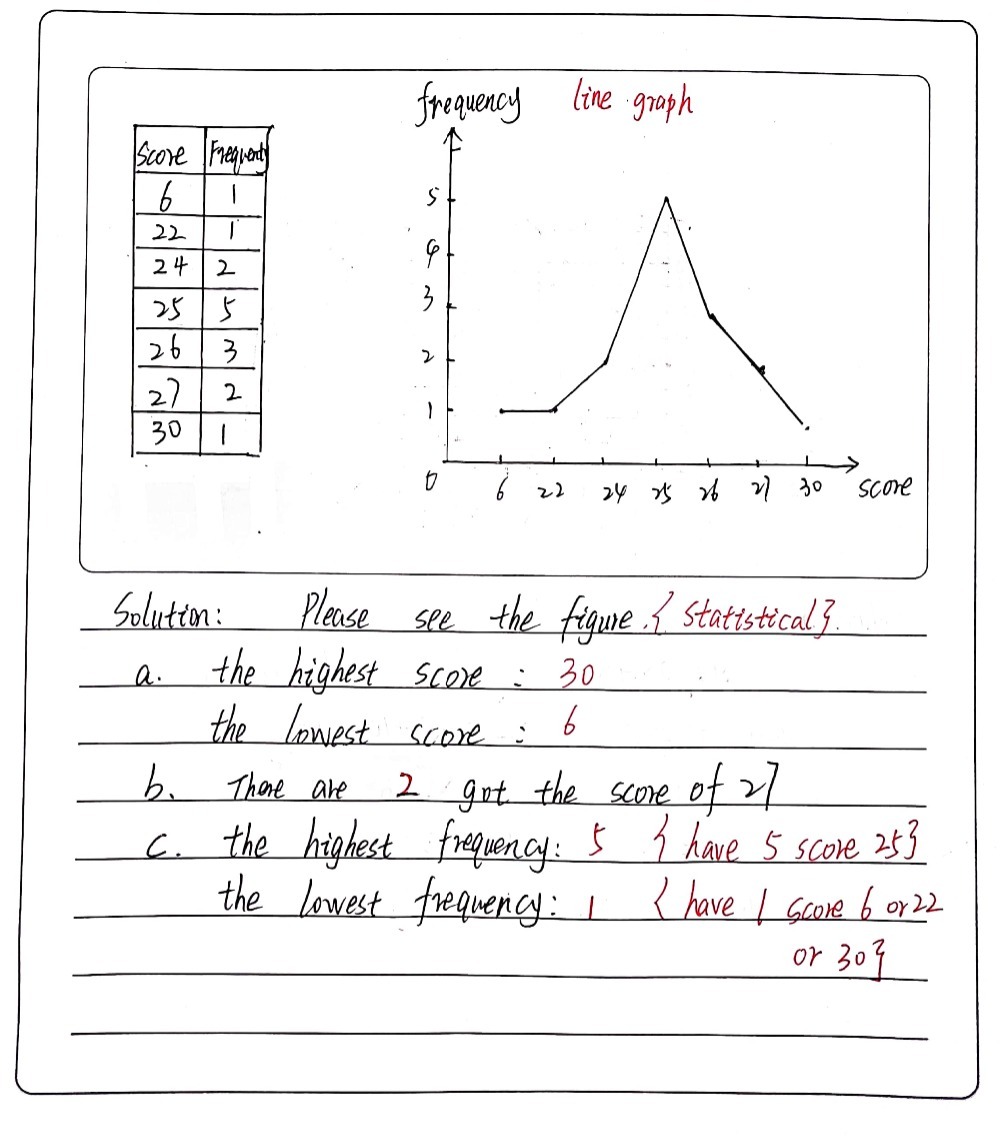 frequency line graph
Score Frequenty
6 1
22 1
24 2
25 5
26 3
27 2
30 1
5
4
3
2
1
0 6 22 24 25 26 27 30 score
Solution: Please see the figure. { statistical }.
a. the highest score : 30
the lowest score : 6
b. There are 2 got the score of 27
c. the highest frequency: 5 { have 5 score 25}
the lowest frequency: 1 { have 1 score 6 or 22
or 30}